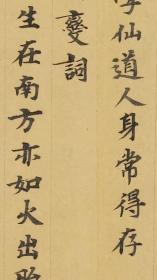 仙道人身常得存
夔詞
生在南方亦如火出